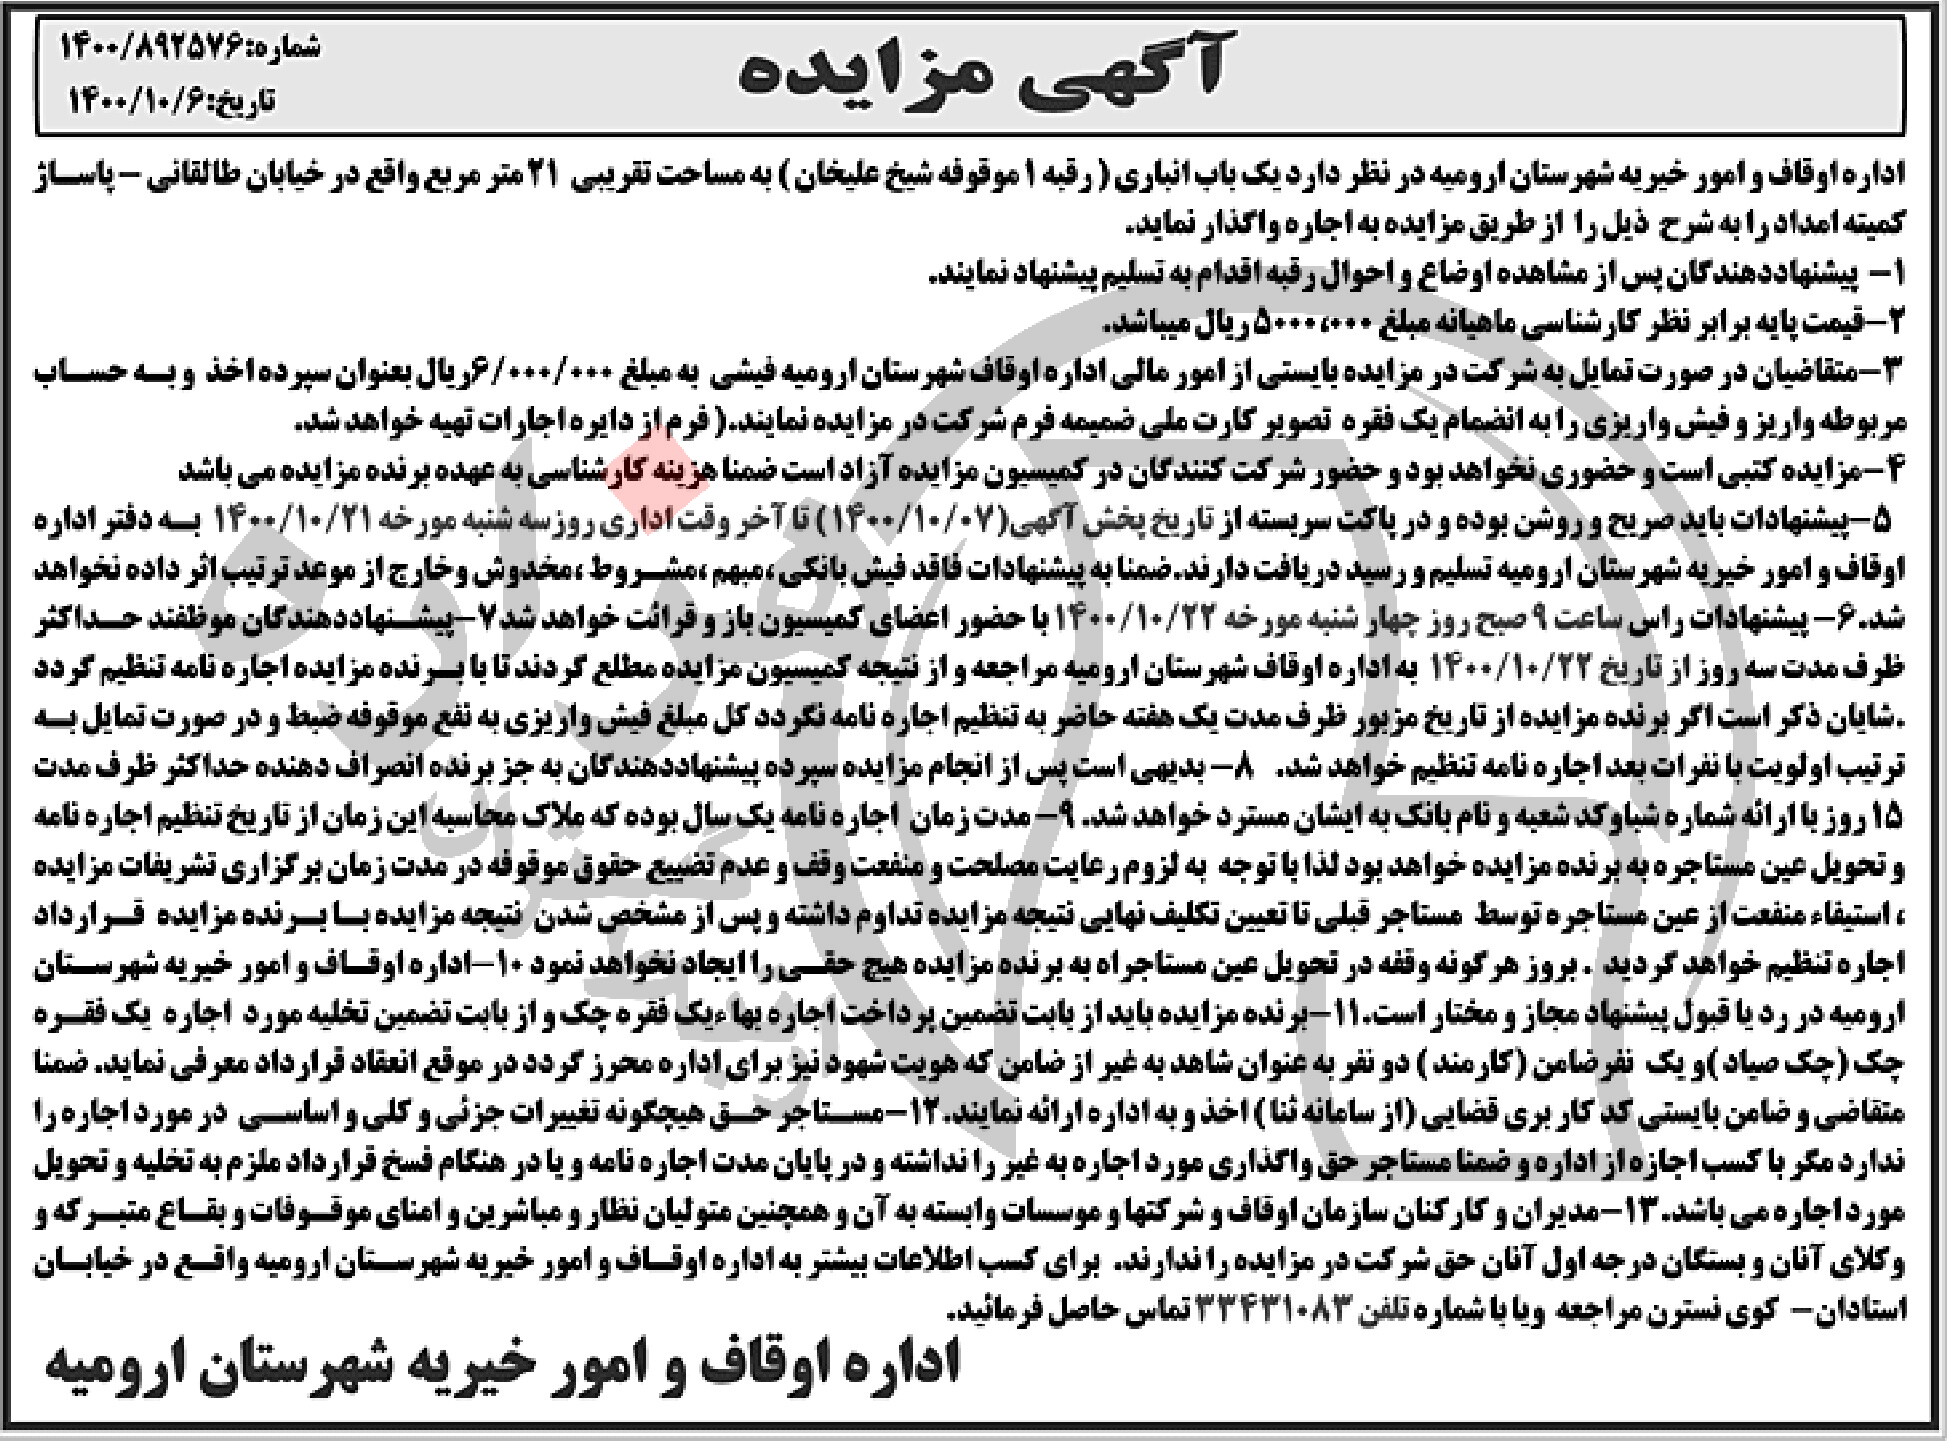 آگهی مزایده
شماره:۱۴۰۰/۸۹۲۵۷۶
تاریخ:۱۴۰۰/۱۰/۶
اداره اوقاف و امور خیریه شهرستان ارومیه در نظر دارد یک باب انباری ( رقبه ۱ موقوفه شیخ علیخان ) به مساحت تقریبی ۲۱ متر مربع واقع در خیابان طالقانی – پاساژ
کمیته امداد را به شرح ذیل را از طریق مزایده به اجاره واگذار نماید.
۱– پیشنهاددهندگان پس از مشاهده اوضاع و احوال رقبه اقدام به تسلیم پیشنهاد نمایند.
۲–قیمت پایه برابر نظر کارشناسی ماهیانه مبلغ ۵۰۰۰،۰۰۰ ریال میباشد.
۳–متقاضیان در صورت تمایل به شرکت در مزایده بایستی از امور مالی اداره اوقاف شهرستان ارومیه فیشی به مبلغ ۶/۰۰۰/۰۰۰ریال بعنوان سپرده اخذ و به حساب
مربوطه واریز و فیش واریزی را به انضمام یک فقره تصویر کارت ملی ضمیمه فرم شرکت در مزایده نمایند.( فرم از دایره اجارات تهیه خواهد شد.
۴–مزایده کتبی است و حضوری نخواهد بود و حضور شرکت کنندگان در کمیسیون مزایده آزاد است ضمنا هزینه کارشناسی به عهده برنده مزایده می باشد
۵–پیشنهادات باید صریح و روشن بوده و در پاکت سربسته از تاریخ پخش آگهی(۱۴۰۰/۱۰/۰۷) تا آخر وقت اداری روز سه شنبه مورخه ۱۴۰۰/۱۰/۲۱ به دفتر اداره
اوقاف و امور خیریه شهرستان ارومیه تسلیم و رسید دریافت دارند.ضمنا به پیشنهادات فاقد فیش بانکی ،مبهم ،مشروط ،مخدوش وخارج از موعد ترتیب اثر داده نخواهد
شد.۶– پیشنهادات راس ساعت ۹ صبح روز چهار شنبه مورخه ۱۴۰۰/۱۰/۲۲ با حضور اعضای کمیسیون باز و قرائت خواهد شد ۷–پیشنهاددهندگان موظفند حداکثر
ظرف مدت سه روز از تاریخ ۱۴۰۰/۱۰/۲۲ به اداره اوقاف شهرستان ارومیه مراجعه و از نتیجه کمیسیون مزایده مطلع گردند تا با برنده مزایده اجاره نامه تنظیم گردد
.شایان ذکر است اگر برنده مزایده از تاریخ مزبور ظرف مدت یک هفته حاضر به تنظیم اجاره نامه نگردد کل مبلغ فیش واریزی به نفع موقوفه ضبط و در صورت تمایل به
ترتیب اولویت با نفرات بعد اجاره نامه تنظیم خواهد شد. ۸– بدیهی است پس از انجام مزایده سپرده پیشنهاددهندگان به جز برنده انصراف دهنده حداکثر ظرف مدت
۱۵ روز با ارائه شماره شباوکد شعبه و نام بانک به ایشان مسترد خواهد شد. ۹– مدت زمان اجاره نامه یک سال بوده که ملاک محاسبه این زمان از تاریخ تنظیم اجاره نامه
و تحویل عین مستاجره به برنده مزایده خواهد بود لذا با توجه به لزوم رعایت مصلحت و منفعت وقف و عدم تضییع حقوق موقوفه در مدت زمان برگزاری تشریفات مزایده
، استیفاء منفعت از عین مستاجره توسط مستاجر قبلی تا تعیین تکلیف نهایی نتیجه مزایده تداوم داشته و پس از مشخص شدن نتیجه مزایده با برنده مزایده قرارداد
اجاره تنظیم خواهد گردید . بروز هر گونه وقفه در تحویل عین مستاجراه به برنده مزایده هیچ حقی را ایجاد نخواهد نمود ۱۰–اداره اوقاف و امور خیریه شهرستان
ارومیه در رد یا قبول پیشنهاد مجاز و مختار است.۱۱–برنده مزایده باید از بابت تضمین پرداخت اجاره بهاءیک فقره چک و از بابت تضمین تخلیه مورد اجاره یک فقره
چک (چک صیاد )و یک نفرضامن (کارمند ) دو نفر به عنوان شاهد به غیر از ضامن که هویت شهود نیز برای اداره محرز گردد در موقع انعقاد قرارداد معرفی نماید. ضمنا
متقاضی و ضامن بایستی کد کاربری قضایی (از سامانه ثنا ) اخذ و به اداره ارائه نمایند.۱۲–مستاجر حق هیچگونه تغییرات جزئی و کلی و اساسی در مورد اجاره را
ندارد مگر با کسب اجازه از اداره و ضمنا مستاجر حق واگذاری مورد اجاره به غیر را نداشته و در پایان مدت اجاره نامه و یا در هنگام فسخ قرارداد ملزم به تخلیه و تحویل
مورد اجاره می باشد.۱۳–مدیران و کارکنان سازمان اوقاف و شرکتها و موسسات وابسته به آن و همچنین متولیان نظار و مباشرین و امنای موقوفات و بقاع متبرکه و
وکلای آنان و بستگان درجه اول آنان حق شرکت در مزایده را ندارند. برای کسب اطلاعات بیشتر به اداره اوقاف و امور خیریه شهرستان ارومیه واقع در خیابان
استادان– کوی نسترن مراجعه ویا با شماره تلفن ۳۳۴۳۱۰۸۳ تماس حاصل فرمائید.
اداره اوقاف و امور خیریه شهرستان ارومیه